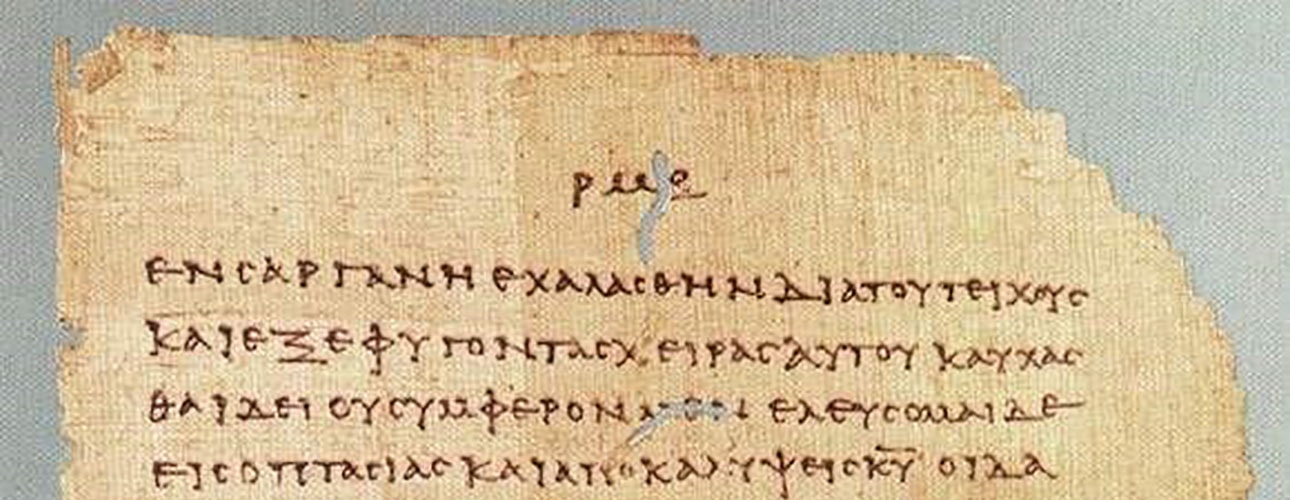 ΕΝ ϹΑΡΓΑΝΗ ΕΧΑΛΑϹΘΗΝ ΔΙΑ ΤΟΥ ΤΕΙΧΟΥϹ
ΚΑΙ ΕΞΕΦΥΓΟΝ ΤΑϹ ΧΕΙΡΑϹ ΑΥΤΟΥ ΚΑΥΧΑϹ
ΘΑΙ ΔΕΙ ΟΥ ϹΥΜΦΕΡΟΝ ΕΛΕΥϹΟΜΑΙ ΔΕ
ΕΙϹ ΟΠΤΑϹΙΑϹ ΚΑΙ ΑΠΟΚΑΛΥΨΕΙϹ Κ̅Υ̅ ΟΙΔΑ